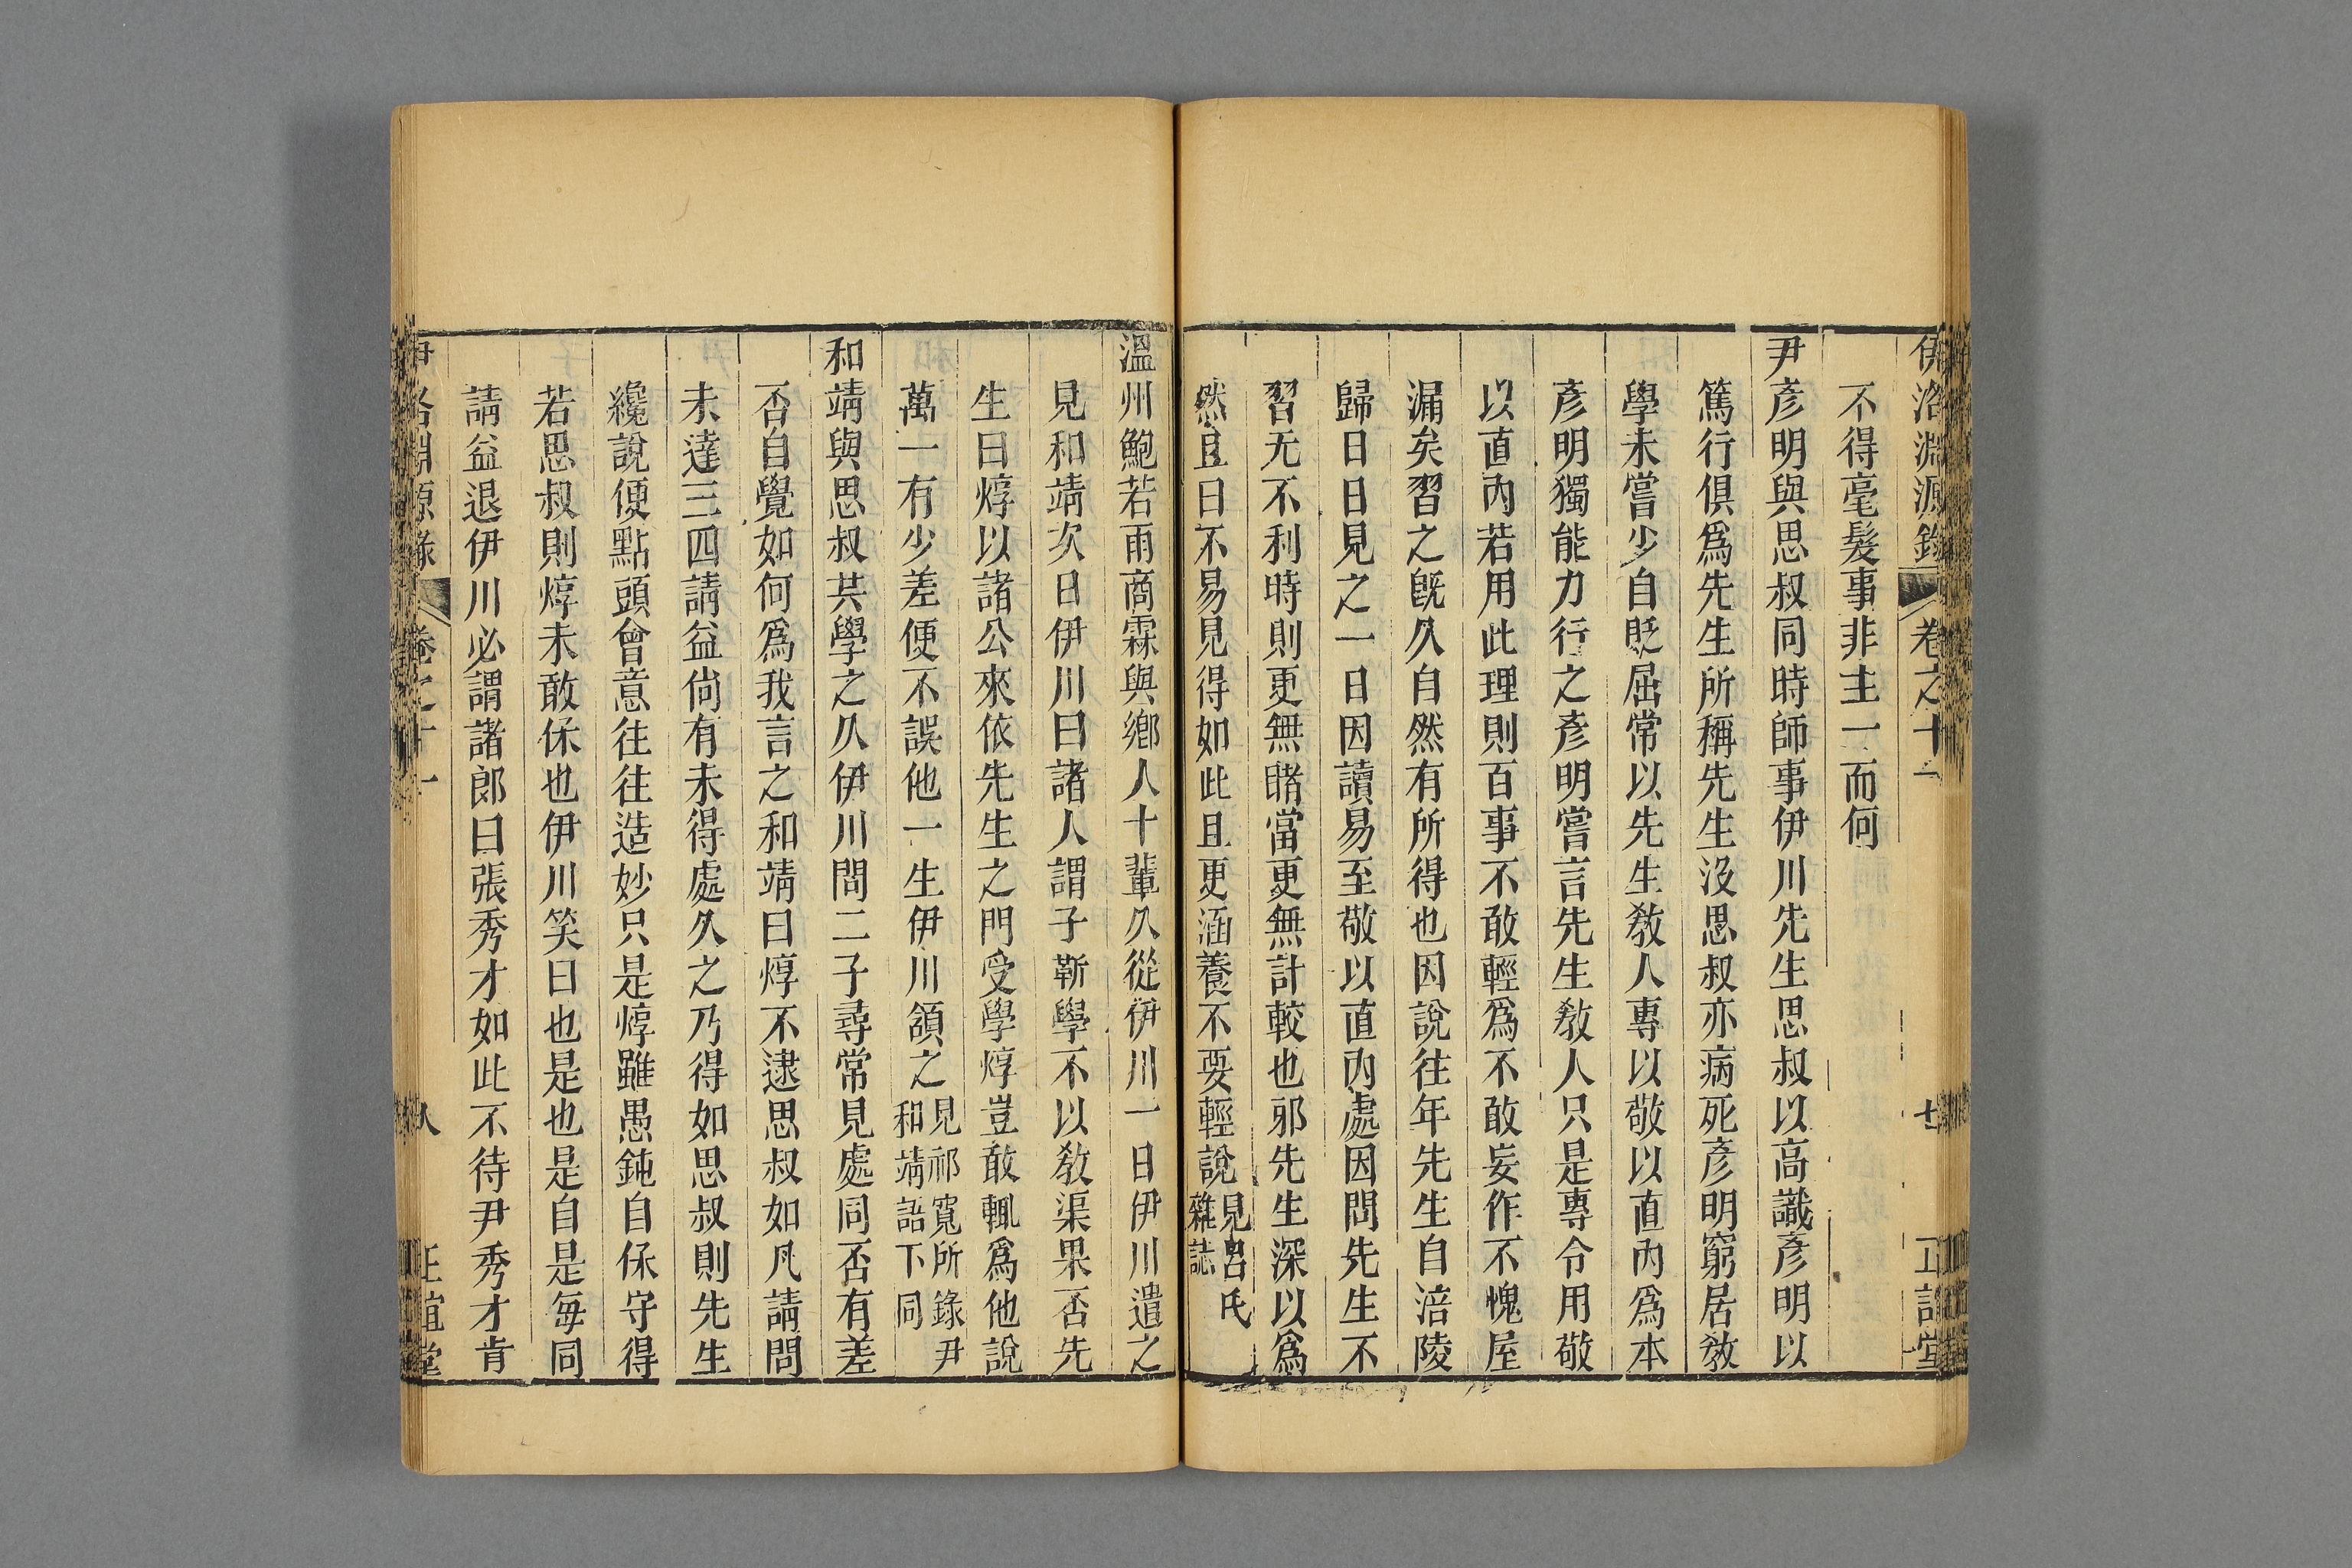 伊洛淵源錄 卷之十一 七 正誼堂
不得毫髮事非主一而何
尹彥明與思叔同時師事伊川先生思叔以高識彥明以
篤行俱爲先生所稱先生沒思叔亦病死彥明窮居教
學未嘗少自貶屈常以先生教人專以敬以直內爲本
彥明獨能力行之彥明嘗言先生教人只是專令用敬
以直內若用此理則百事不敢輕爲不敢妄作不愧屋
漏矣習之旣久自然有所得也因說往年先生自涪陵
歸日日見之一日因讀易至敬以直內處因問先生不
習无不利時則更無睹當更無計較也邪先生深以爲
然且曰不易見得如此且更涵養不要輕說見呂氏
雜誌
溫州鮑若雨商霖與鄉人十輩久從伊川一日伊川遣之
見和靖次日伊川曰諸人謂子靳學不以教渠果否先
生曰焞以諸公來依先生之門受學焞豈敢輒爲他說
萬一有少差便不誤他一生伊川頷之見祁寬所錄尹
和靖語下同
和靖與思叔共學之久伊川問二子尋常見處同否有差
否自覺如何爲我言之和靖曰焞不逮思叔如凡請問
未達三四請益尙有未得處久之乃得如思叔則先生
纔說便點頭會意往往造妙只是焞雖愚鈍自保守得
若思叔則焞未敢保也伊川笑曰也是也是自是每同
請益退伊川必謂諸郎曰張秀才如此不待尹秀才肯
伊洛淵源錄 卷之十一 八 正誼堂